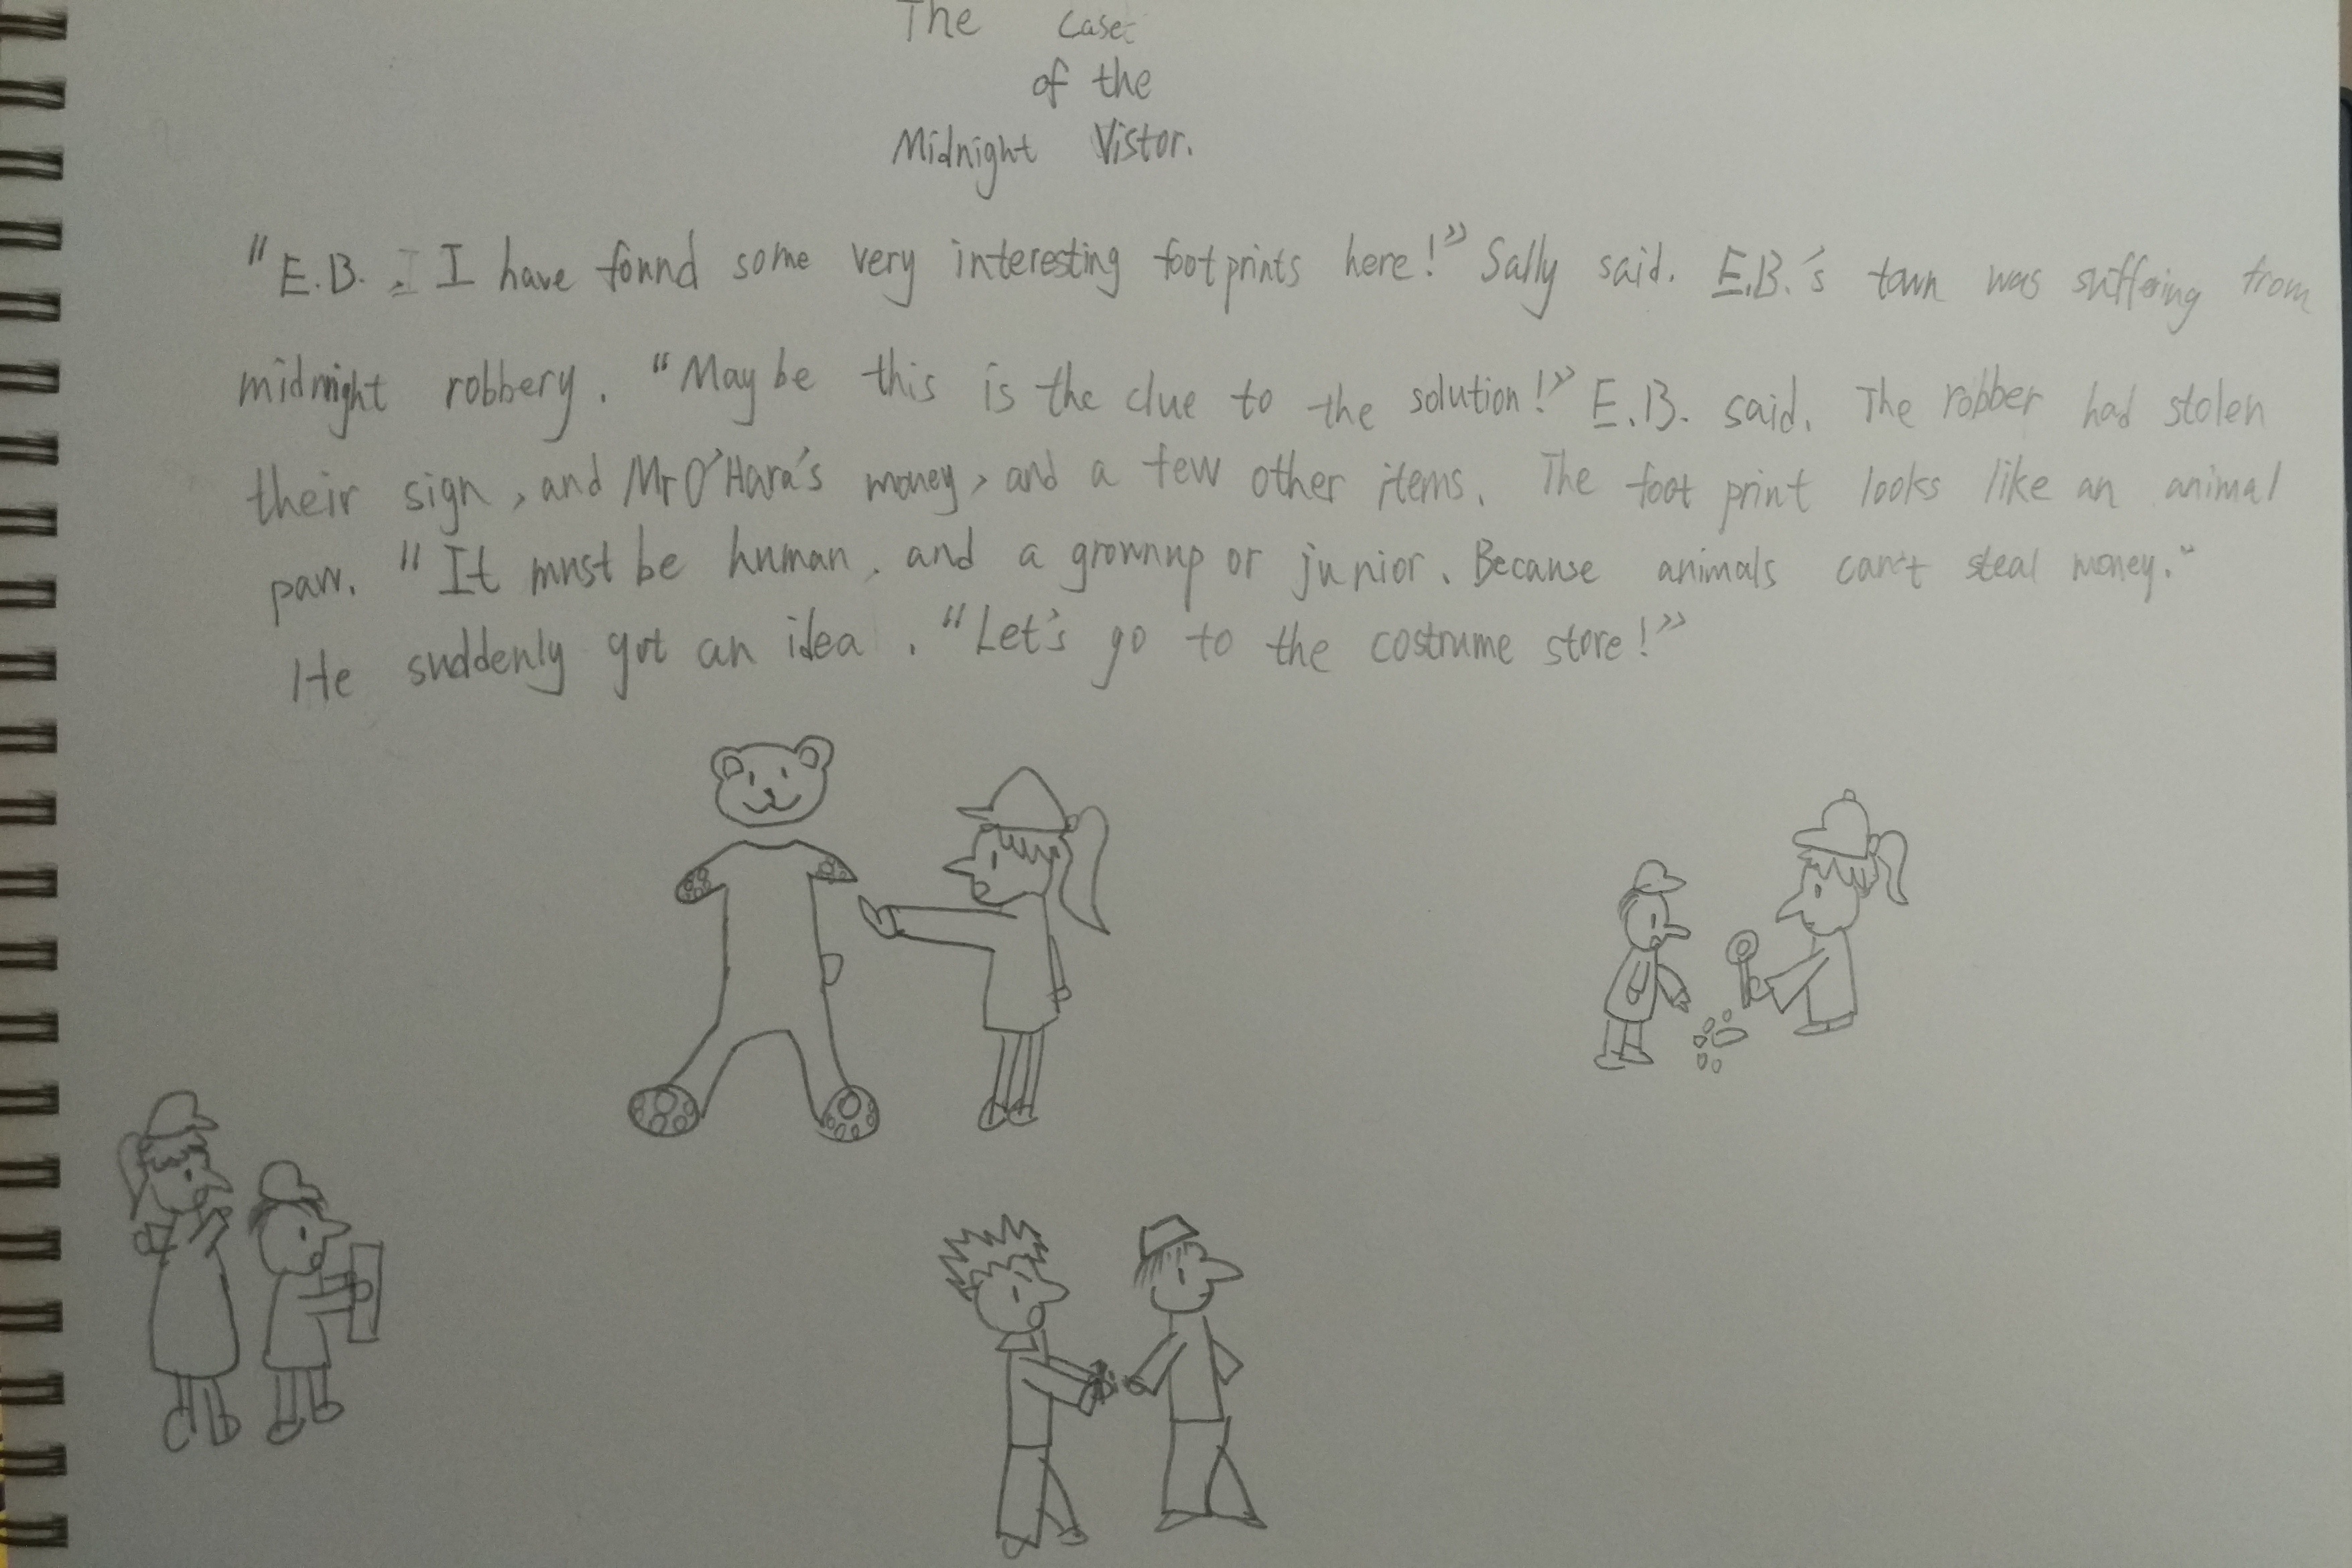 The Case
of the
Midnight Vistor.
"E.B. I I have found some very interesting footprints here!" Sally said. E.B.'s town was suffering from
midnight robbery. "May be this is the clue to the solution!" E.B. said. The robber had stolen
their sign, and Mr O'Hara's money, and a few other items. The foot print looks like an animal
paw. "It must be human, and a grownup or junior. Because animals can't steal money."
He suddenly got an idea. "Let's go to the costrume store!"